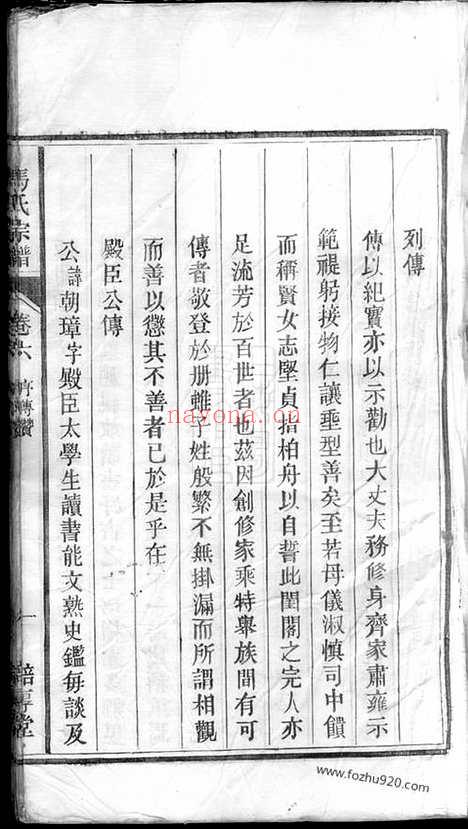 列傳
傳以紀實亦以示勸也大丈夫務修身齊家肅雍示
範禔躬接物仁讓垂型善矣至若母儀淑慎司中饋
而稱賢女志堅貞指柏舟以自誓此閨閣之完人亦
足流芳於百世者也茲因創修家乘特舉族間有可
傳者敬登於册雖子姓般繁不無掛漏而所謂相觀
而善以懲其不善者已於是乎在
殿臣公傳
公諱朝璋字殿臣太學生讀書能文熟史鑑每談及
馬氏宗譜
卷
傳贊
一
堂
nayona.cn
www.fozhu920.com